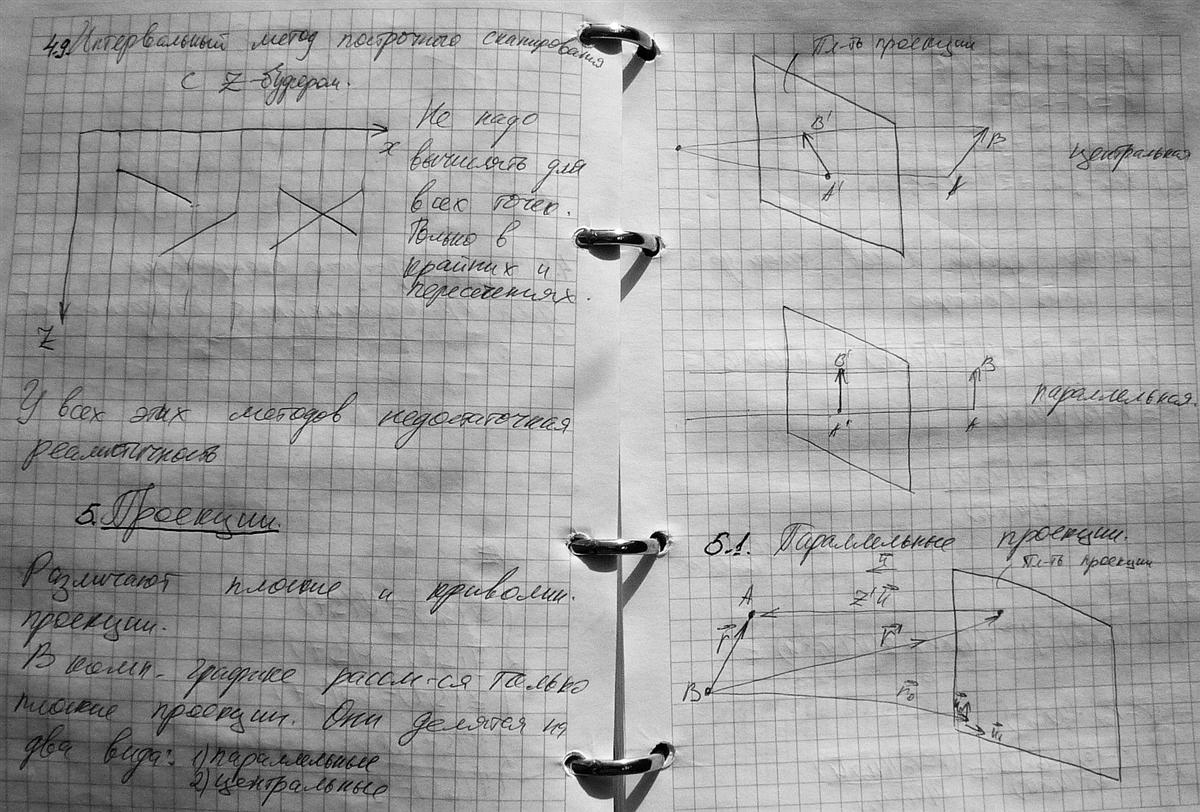 4.9. Интервальный метод построчного сканирования
с Z-буфером.
x
Z
Не надо
вычислять для
всех точек.
Только в
крайних и
пересечениях.
У всех этих методов недостаточная
реалистичность
5. Проекции.
Различают плоские и криволин.
проекции.
В комп. графике рассм-ся только
плоские проекции. Они делятся на
два вида: 1) параллельные
2) центральные
Пл-ть проекции
B'
B
A'
A
центральная
B'
B
A'
A
параллельная.
5.1. Параллельные проекции.
Пл-ть проекции
A
z'
r
r'
B
r₀